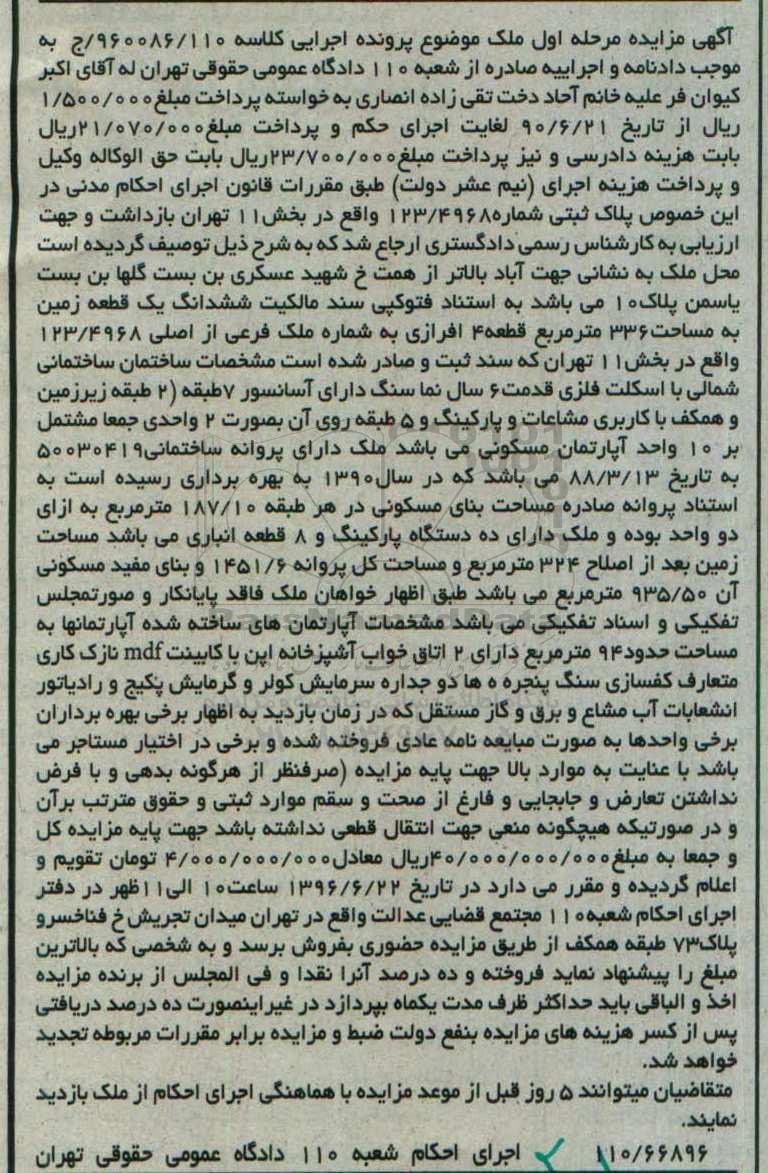 آگهی مزایده مرحله اول ملک موضوع پرونده اجرایی کلاسه ۹۶۰۰۸۶/۱۱۰/ج به
موجب دادنامه و اجراییه صادره از شعبه ۱۱۰ دادگاه عمومی حقوقی تهران له آقای اکبر
کیوان فر علیه خانم آحاد دخت تقی زاده انصاری به خواسته پرداخت مبلغ۱/۵۰۰/۰۰۰
ریال از تاریخ ۹۰/۶/۲۱ لغایت اجرای حکم و پرداخت مبلغ۲۱/۰۷۰/۰۰۰ریال
بابت هزینه دادرسی و نیز پرداخت مبلغ۲۳/۷۰۰/۰۰۰ریال بابت حق الوکاله وکیل
و پرداخت هزینه اجرای (نیم عشر دولت) طبق مقررات قانون اجرای احکام مدنی در
این خصوص پلاک ثبتی شماره۱۲۳/۴۹۶۸ واقع در بخش۱۱ تهران بازداشت و جهت
ارزیابی به کارشناس رسمی دادگستری ارجاع شد که به شرح ذیل توصیف گردیده است
محل ملک به نشانی جهت آباد بالاتر از همت خ شهید عسکری بن بست گلها بن بست
یاسمن پلاک۱۰ می باشد به استناد فتوکپی سند مالکیت ششدانگ یک قطعه زمین
به مساحت۳۳۶ مترمربع قطعه۴ افرازی به شماره ملک فرعی از اصلی ۱۲۳/۴۹۶۸
واقع در بخش۱۱ تهران که سند ثبت و صادر شده است مشخصات ساختمان ساختمانی
شمالی با اسکلت فلزی قدمت۶ سال نما سنگ دارای آسانسور ۷طبقه (۲ طبقه زیرزمین
و همکف با کاربری مشاعات و پارکینگ و ۵ طبقه روی آن بصورت ۲ واحدی جمعا مشتمل
بر ۱۰ واحد آپارتمان مسکونی می باشد ملک دارای پروانه ساختمانی۵۰۰۳۰۴۱۹
به تاریخ ۸۸/۳/۱۳ می باشد که در سال۱۳۹۰ به بهره برداری رسیده است به
استناد پروانه صادره مساحت بنای مسکونی در هر طبقه ۱۸۷/۱۰ مترمربع به ازای
دو واحد بوده و ملک دارای ده دستگاه پارکینگ و ۸ قطعه انباری می باشد مساحت
زمین بعد از اصلاح ۳۲۴ مترمربع و مساحت کل پروانه ۱۴۵۱/۶ و بنای مفید مسکونی
آن ۹۳۵/۵۰ مترمربع می باشد طبق اظهار خواهان ملک فاقد پایانکار و صورتمجلس
تفکیکی و اسناد تفکیکی می باشد مشخصات آپارتمان های ساخته شده آپارتمانها به
مساحت حدود۹۴ مترمربع دارای ۲ اتاق خواب آشپزخانه اپن با کابینت mdf نازک کاری
متعارف کفسازی سنگ پنجره ه ها دو جداره سرمایش کولر و گرمایش پکیج و رادیاتور
انشعابات آب مشاع و برق و گاز مستقل که در زمان بازدید به اظهار برخی بهره برداران
برخی واحدها به صورت مبایعه نامه عادی فروخته شده و برخی در اختیار مستاجر می
باشد با عنایت به موارد بالا جهت پایه مزایده (صرفنظر از هرگونه بدهی و با فرض
نداشتن تعارض و جابجایی و فارغ از صحت و سقم موارد ثبتی و حقوق مترتب برآن
و در صورتیکه هیچگونه منعی جهت انتقال قطعی نداشته باشد جهت پایه مزایده کل
و جمعا به مبلغ۴۰/۰۰۰/۰۰۰/۰۰۰ریال معادل۴/۰۰۰/۰۰۰/۰۰۰ تومان تقویم و
اعلام گردیده و مقرر می دارد در تاریخ ۱۳۹۶/۶/۲۲ ساعت۱۰ الی۱۱ظهر در دفتر
اجرای احکام شعبه۱۱۰ مجتمع قضایی عدالت واقع در تهران میدان تجریش خ فناخسرو
پلاک۷۳ طبقه همکف از طریق مزایده حضوری بفروش برسد و به شخصی که بالاترین
مبلغ را پیشنهاد نماید فروخته و ده درصد آنرا نقدا و فی المجلس از برنده مزایده
اخذ و الباقی باید حداکثر ظرف مدت یکماه بپردازد در غیراینصورت ده درصد دریافتی
پس از کسر هزینه های مزایده بنفع دولت ضبط و مزایده برابر مقررات مربوطه تجدید
خواهد شد.
متقاضیان میتوانند ۵ روز قبل از موعد مزایده با هماهنگی اجرای احکام از ملک بازدید
نمایند.
۱۱۰/۶۶۸۹۶ اجرای احکام شعبه ۱۱۰ دادگاه عمومی حقوقی تهران